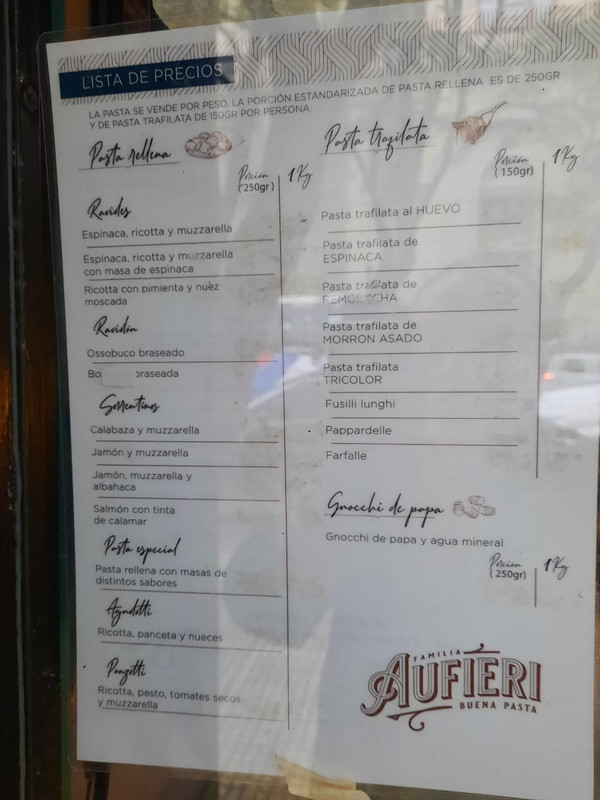 LISTA DE PRECIOS
LA PASTA SE VENDE POR PESO, LA PORCIÓN ESTANDARIZADA DE PASTA RELLENA ES DE 250GR
Y DE PASTA TRAFILATA DE 150GR POR PERSONA.
Pasta rellena
Porción
(250gr)
1 Kg
Ravioles
Espinaca, ricotta y muzzarella
Espinaca, ricotta y muzzarella
con masa de espinaca
Ricotta con pimienta y nuez
moscada
Raviolón
Ossobuco braseado
braseada
Sorrentinos
Calabaza y muzzarella
Jamón y muzzarella
Jamón, muzzarella y
albahaca
Salmón con tinta
de calamar
Pasta especial
Pasta rellena con masas de
distintos sabores
Agnolotti
Ricotta, panceta y nueces
Panzotti
Ricotta, pesto, tomates secos
y muzzarella
Pasta trafilata
Porción
(150gr)
1 Kg
Pasta trafilata al HUEVO
Pasta trafilata de
ESPINACA
Pasta trafilata de
REMOLACHA
Pasta trafilata de
MORRON ASADO
Pasta trafilata
TRICOLOR
Fusilli lunghi
Pappardelle
Farfalle
Gnocchi de papa
Gnocchi de papa y agua mineral
Porción
(250gr)
1 Kg
FAMILIA
AUFIERI
BUENA PASTA